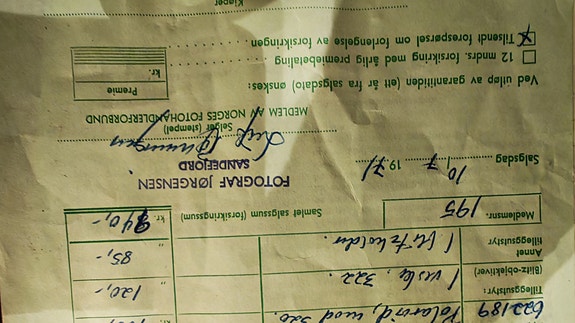 622189 Polaroid, mod 320.
Tilleggsutstyr:
(Blitz-objektiver) 1 veske, 322. " 120,-
Annet
tilleggsutstyr 1 blitzholder. " 85,-
Medlemsnr. 195 Samlet salgssum (forsikringssum) kr. 940,-
FOTOGRAF JØRGENSEN
SANDEFJORD
Salgsdag 10/7 1971
Selger (stempel)
MEDLEM AV NORGES FOTOHANDLERFORBUND
Ved utløp av garantitiden (ett år fra salgsdato) ønskes:
Premie
12 mndrs. forsikring med årlig premiebetaling kr.
x Tilsendt forespørsel om forlengelse av forsikringen
Kjøper